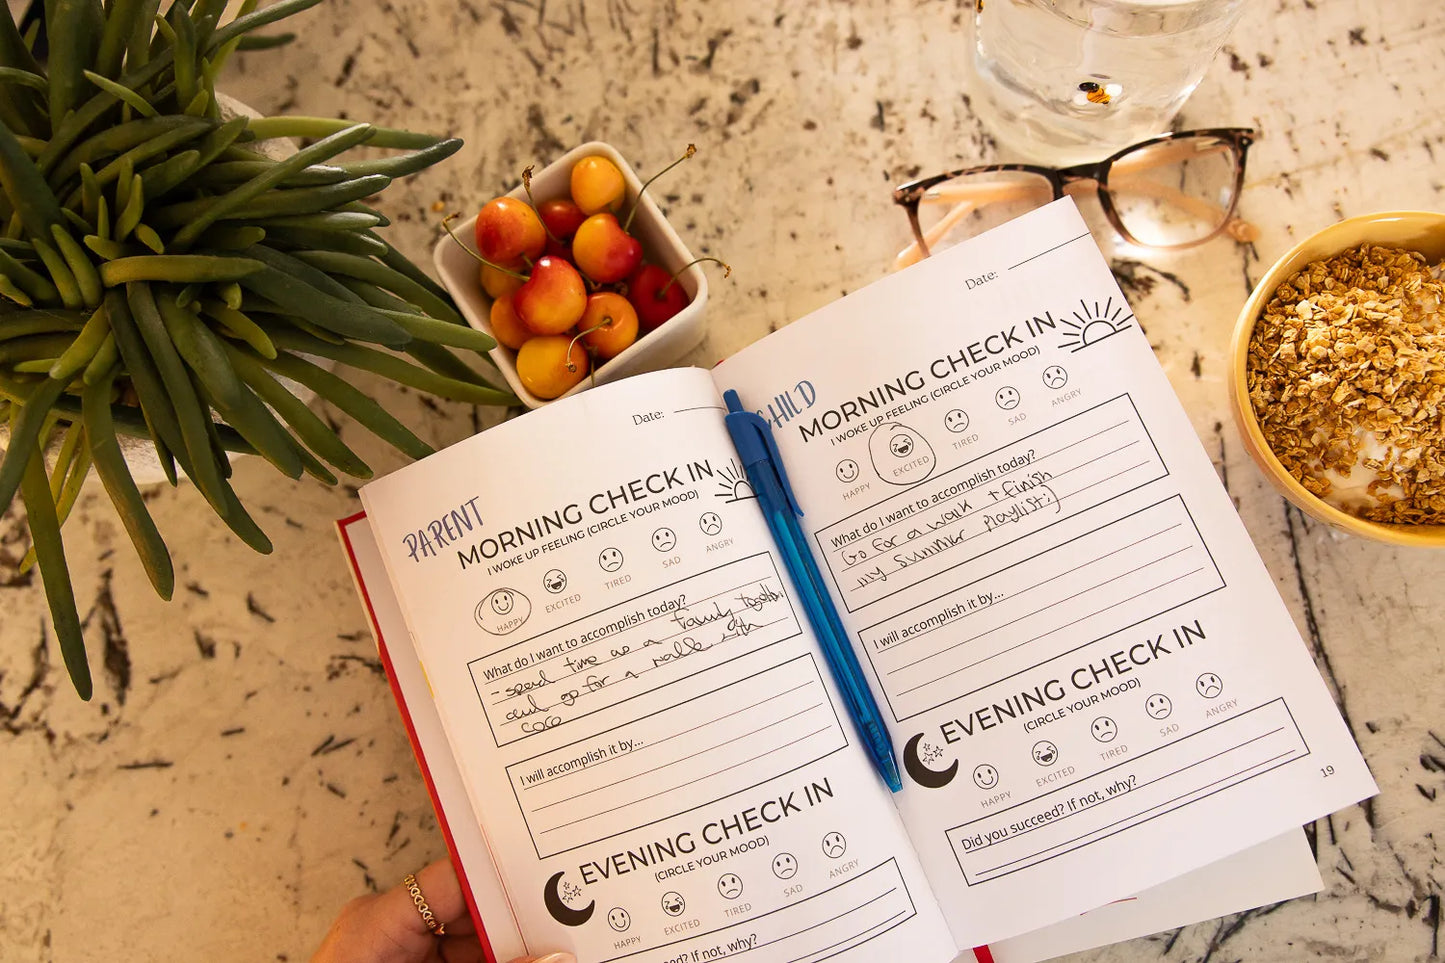 Date:
PARENT
MORNING CHECK IN
I WOKE UP FEELING (CIRCLE YOUR MOOD)
HAPPY EXCITED TIRED SAD ANGRY
What do I want to accomplish today?
- spend time as a family together
and go for a walk with
coco
I will accomplish it by...
EVENING CHECK IN
(CIRCLE YOUR MOOD)
HAPPY EXCITED TIRED SAD ANGRY
If not, why?
Date:
CHILD
MORNING CHECK IN
I WOKE UP FEELING (CIRCLE YOUR MOOD)
HAPPY EXCITED TIRED SAD ANGRY
What do I want to accomplish today?
Go for a walk + finish
my summer playlist:)
I will accomplish it by...
EVENING CHECK IN
(CIRCLE YOUR MOOD)
HAPPY EXCITED TIRED SAD ANGRY
Did you succeed? If not, why?
19